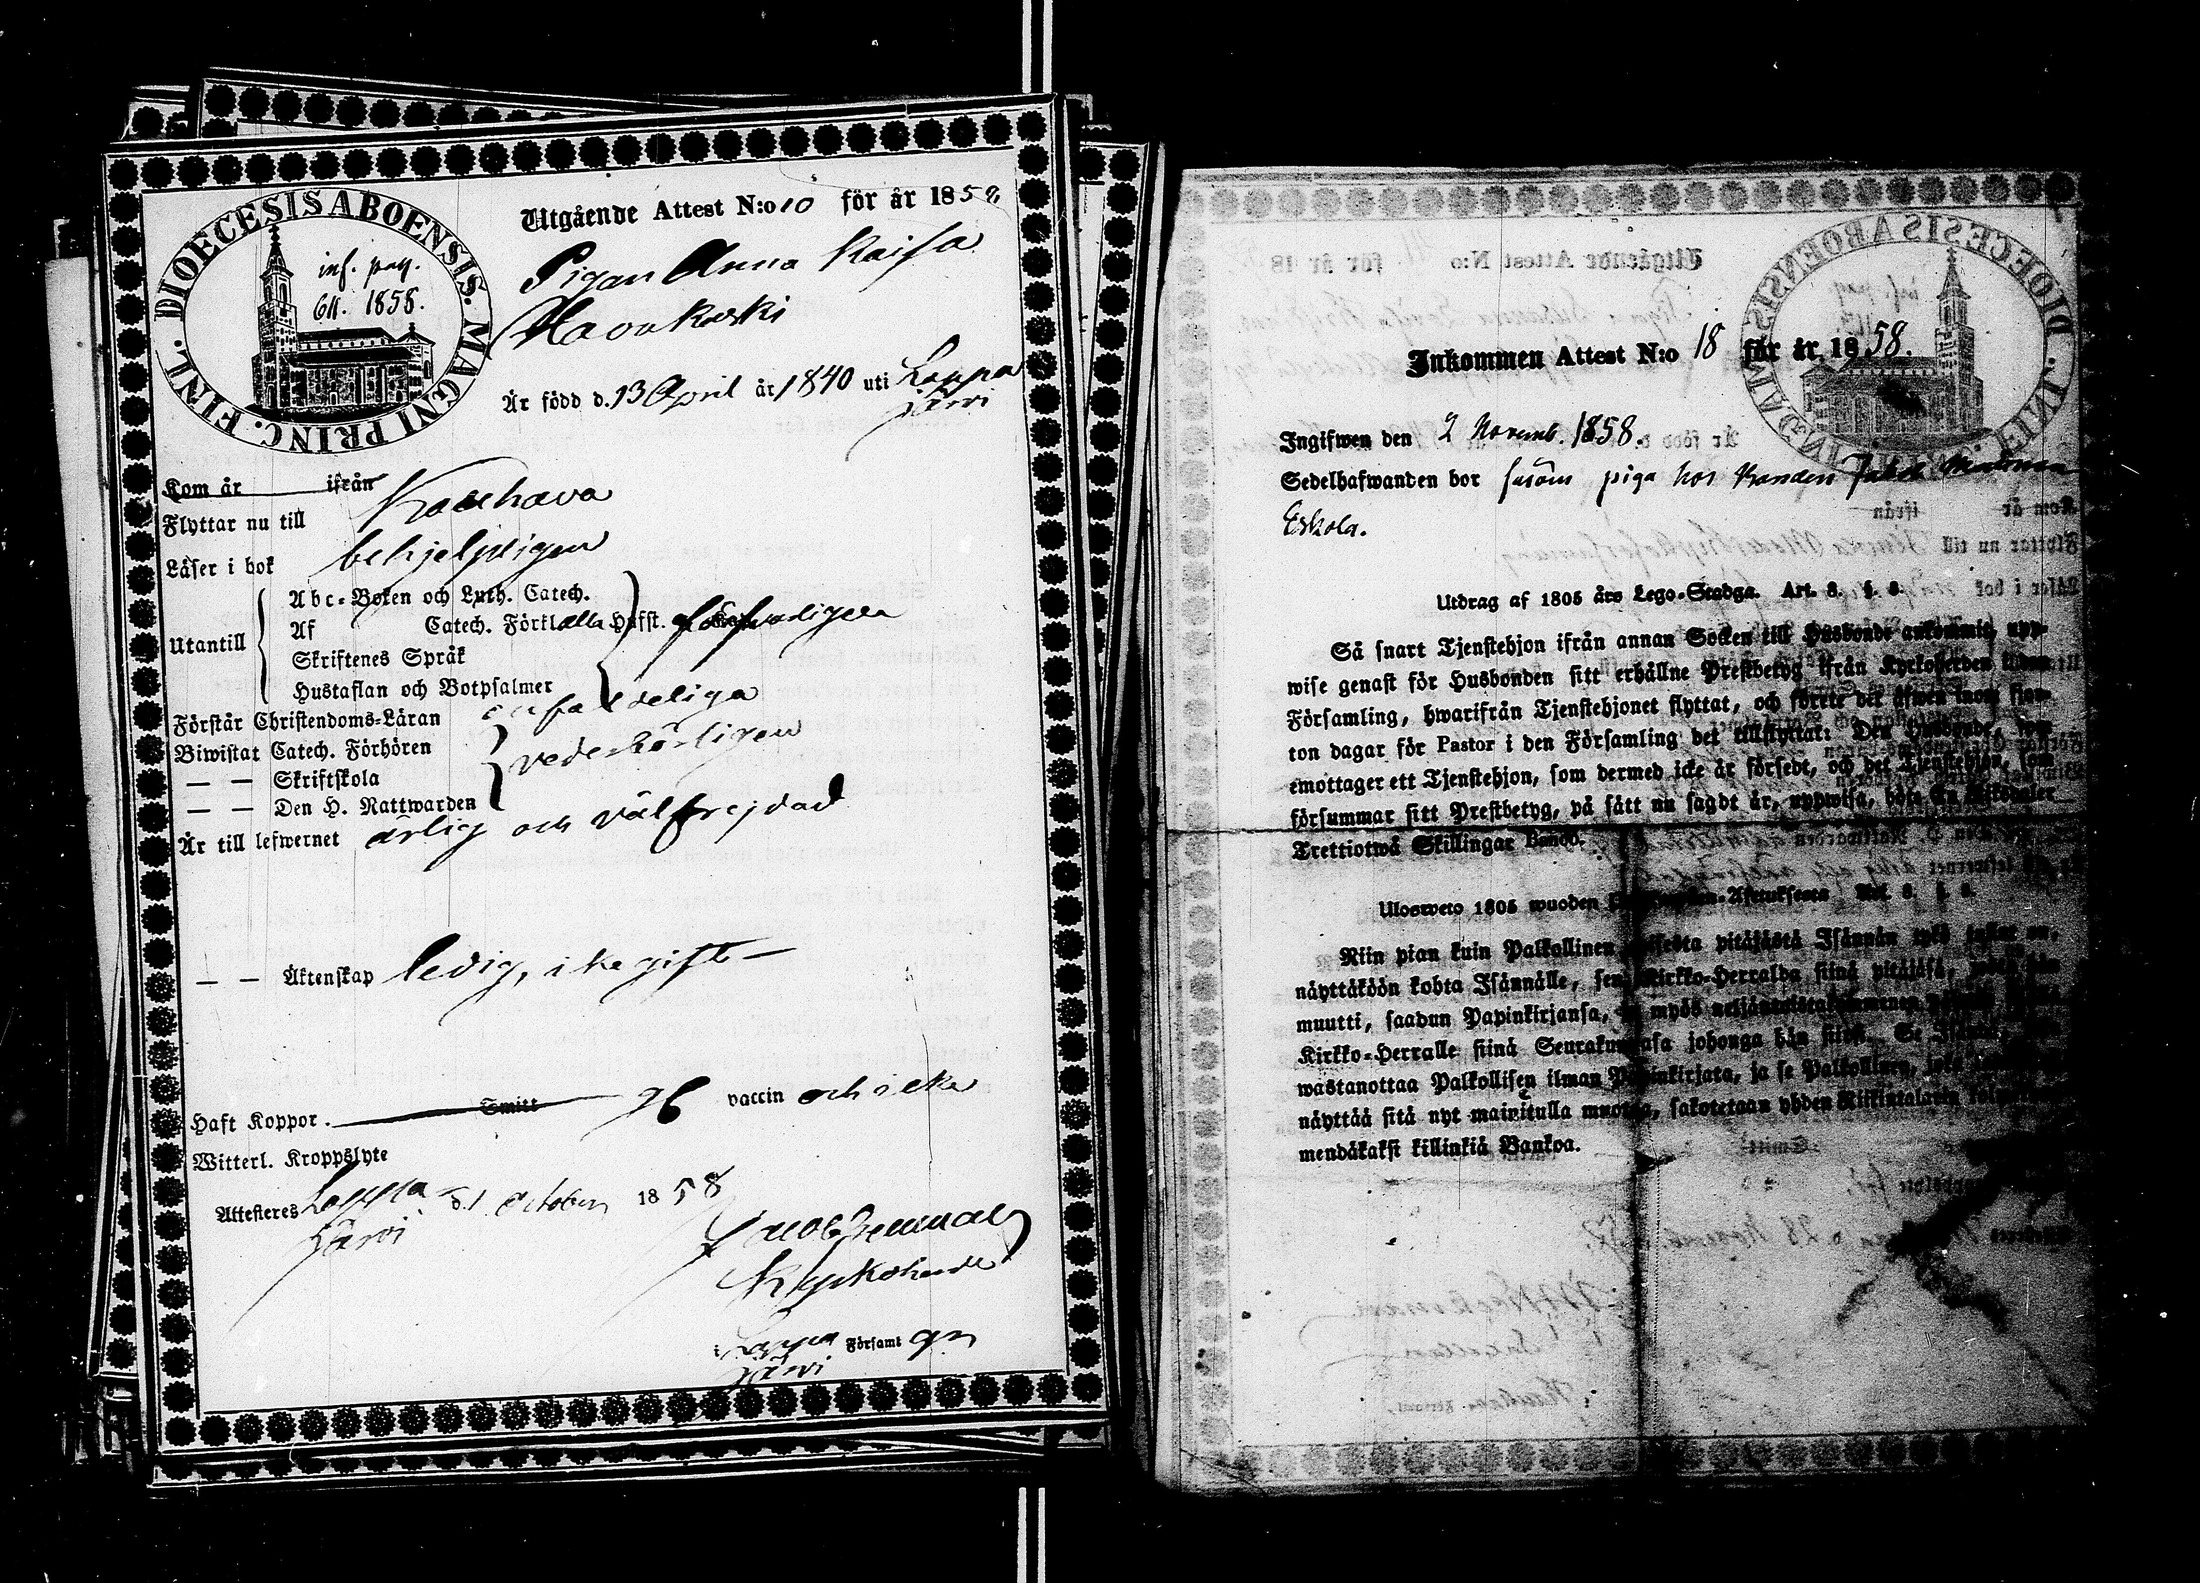 DIOECESIS ABOENSIS. MAGNI PRINC. FINL.
inf. pag.
611. 1858.
Utgående Attest N:o 10 för år 1858
Pigan Anna Kaisa
Är född d. 13 April år 1840 uti Lappa
järvi
Kom år ifrån
Flyttar nu till Kauhava
Läser i bok behjelpligen
Utantill
Abc-Boken och Luth. Catech.
Af Catech. Förkl. alla Hufst.
Skriftenes Språk
Hustaflan och Botpsalmer
Förstår Christendoms-Läran enfaldeliga
Biwistat Catech. Förhören vederbörligen
— — Skriftskola
— — Den H. Nattwarden
Är till lefwernet ärlig och välfrejdad
— — Äktenskap ledig, ike gift —
Haft Koppor. Smitt vaccin och icke
Witterl. Kroppslyte
Attesteras Lappa- d. 1 October 1858
järvi
Kyrkoherde
i Lappa Församl gn
järvi
Inkommen Attest N:o 18 för år 1858.
Ingifwen den 2 Novemb. 1858.
Sedelhafwanden bor såsom piga hos bonden Jakob Mattsson
Eskola.
Utdrag af 1805 års Lego-Stadga. Art. 8. §. 8.
Så snart Tjenstehjon ifrån annan Socken till Husbonde ankommit, upp-
wise genast för Husbonden sitt erhållne Prestbetyg ifrån Kyrkoherden
Församling, hwarifrån Tjenstehjonet flyttat, och förete det äfwen inom fjor-
ton dagar för Pastor i den Församling det tillflyttat: Den Husbonde, som
emottager ett Tjenstehjon, som dermed icke är försedt, och det Tjenstehjon, som
försummar sitt Prestbetyg, på sätt nu sagdt är, uppwisa, böte En Riksdaler
Trettiotwå Skillingar Banco.
Ulosweto 1805 wuoden Art. 8. §. 8.
Niin pian kuin Palkollinen toisesta pitäjästä Isännän tykö tullut on,
näyttäköön kohta Isännälle, sen Kirkko-Herralda siinä pitäjäsä,
muutti, saadun Papinkirjansa, ja myös neljäntoistakymmenen
Kirkko-Herralle siinä Seurakunnasa johonga hän siirsi. Se Isändä,
wastanottaa Palkollisen ilman Papinkirjata, ja se Palkollinen, joka
näyttää sitä nyt mainitulla muotoa, sakotetaan yhden Riikintalarin kolme
mendäkaksi killinkiä Bankoa.